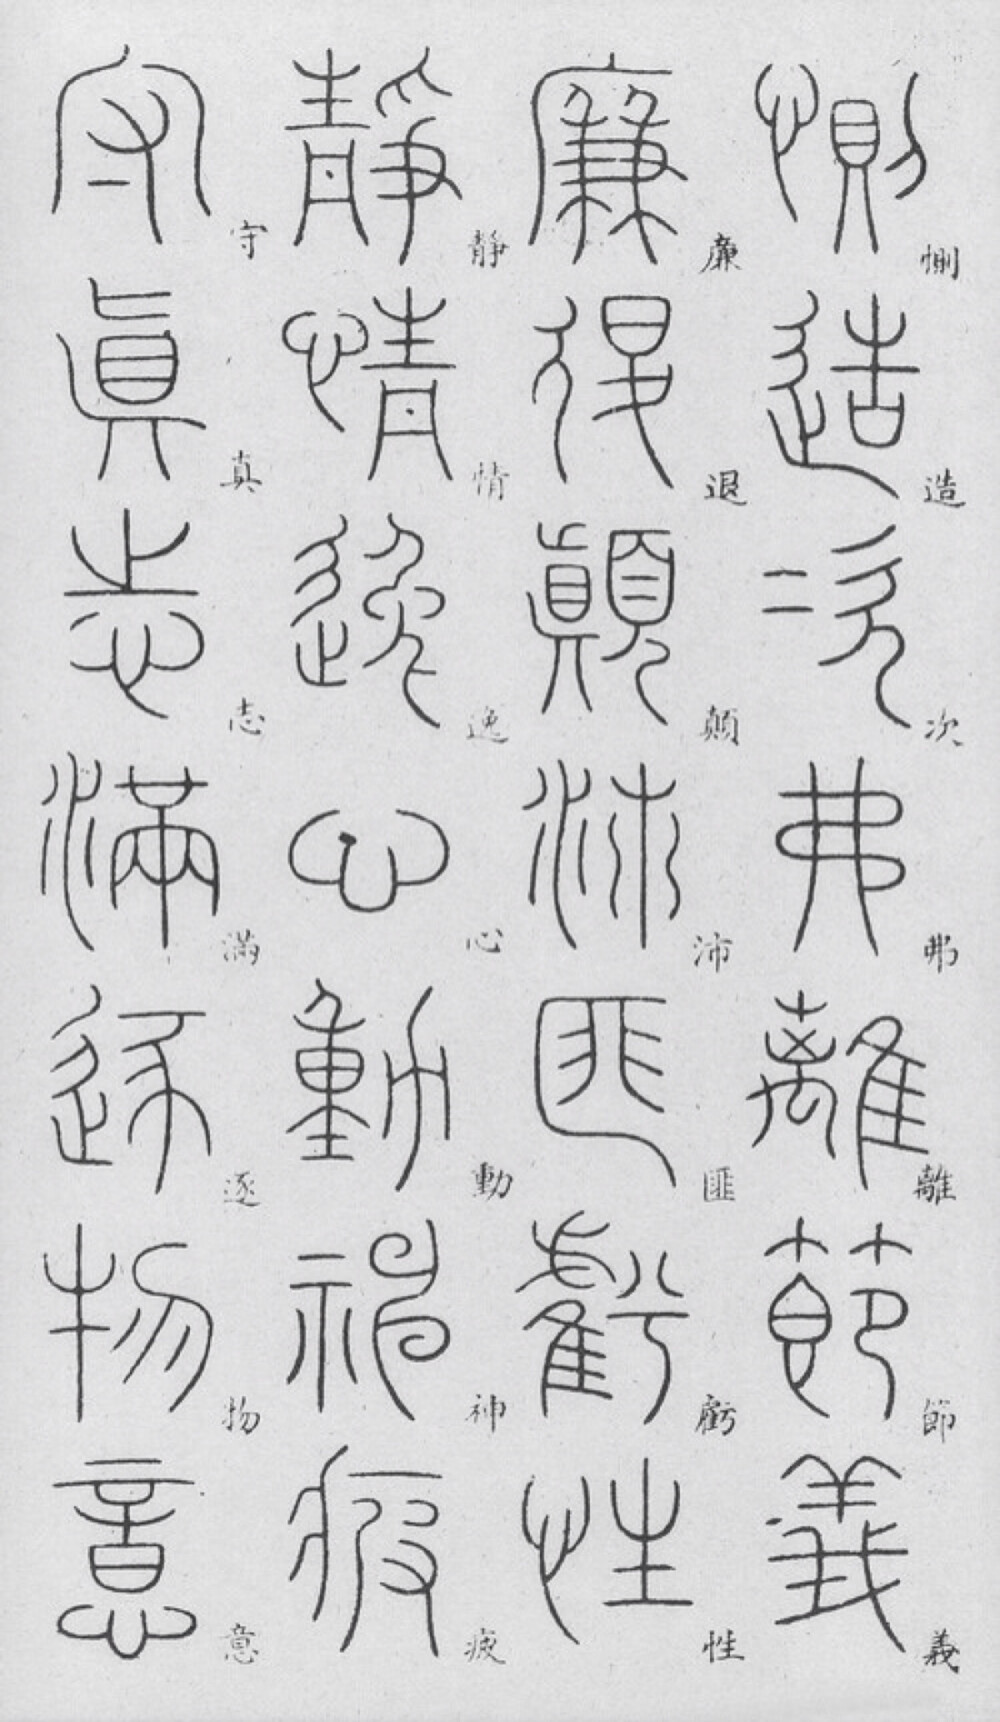 惻造次弗離節義
廉退顛沛匪虧性
静情逸心動神疲
守真志滿逐物意